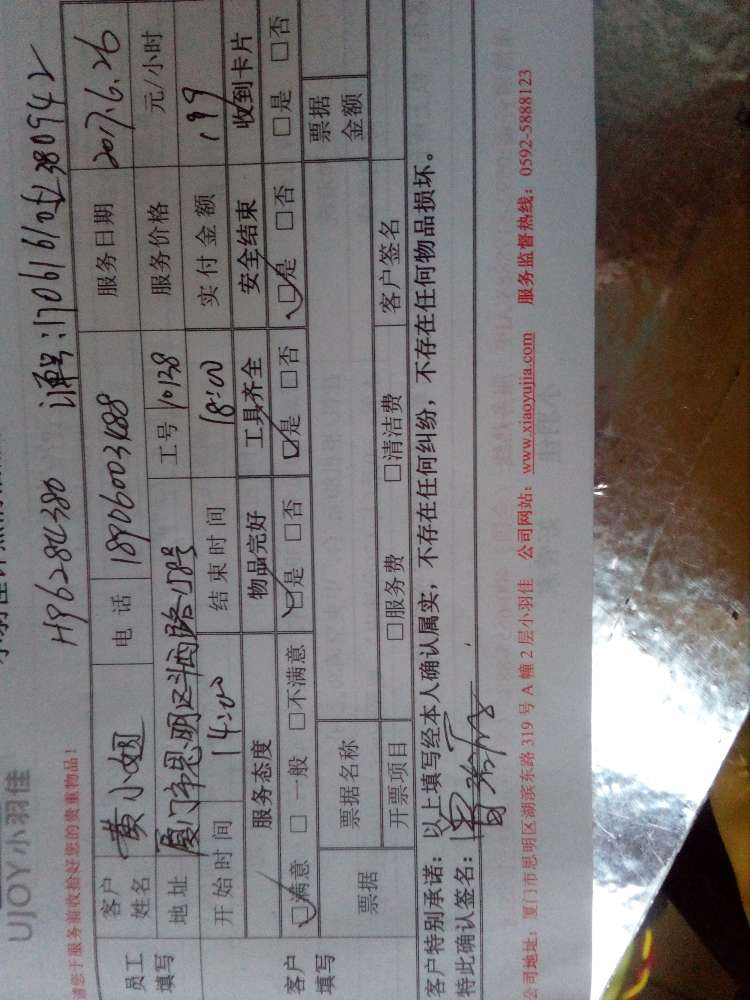 UJOY小羽佳
HP6284380 订单号:1706161012380942
请您于服务前收拾好您的贵重物品!
员工填写 客户姓名 黄小姐 电话 18906003488 服务日期 2017.6.26
地址 厦门市思明区斗西路 工号 10138 服务价格 元/小时
开始时间 14:00 结束时间 18:00 实付金额 199
客户填写 服务态度 物品完好 工具齐全 安全结束 收到卡片
☑满意 □一般 □不满意 ☑是 □否 ☑是 □否 ☑是 □否 □是 □否
票据 票据名称 票据金额
开票项目 □服务费 □清洁费 客户签名
客户特别承诺:以上填写经本人确认属实,不存在任何纠纷,不存在任何物品损坏。
特此确认签名:
公司地址:厦门市思明区湖滨东路 319 号 A 幢 2 层小羽佳 公司网站:www.xiaoyujia.com 服务监督热线:0592-5888123